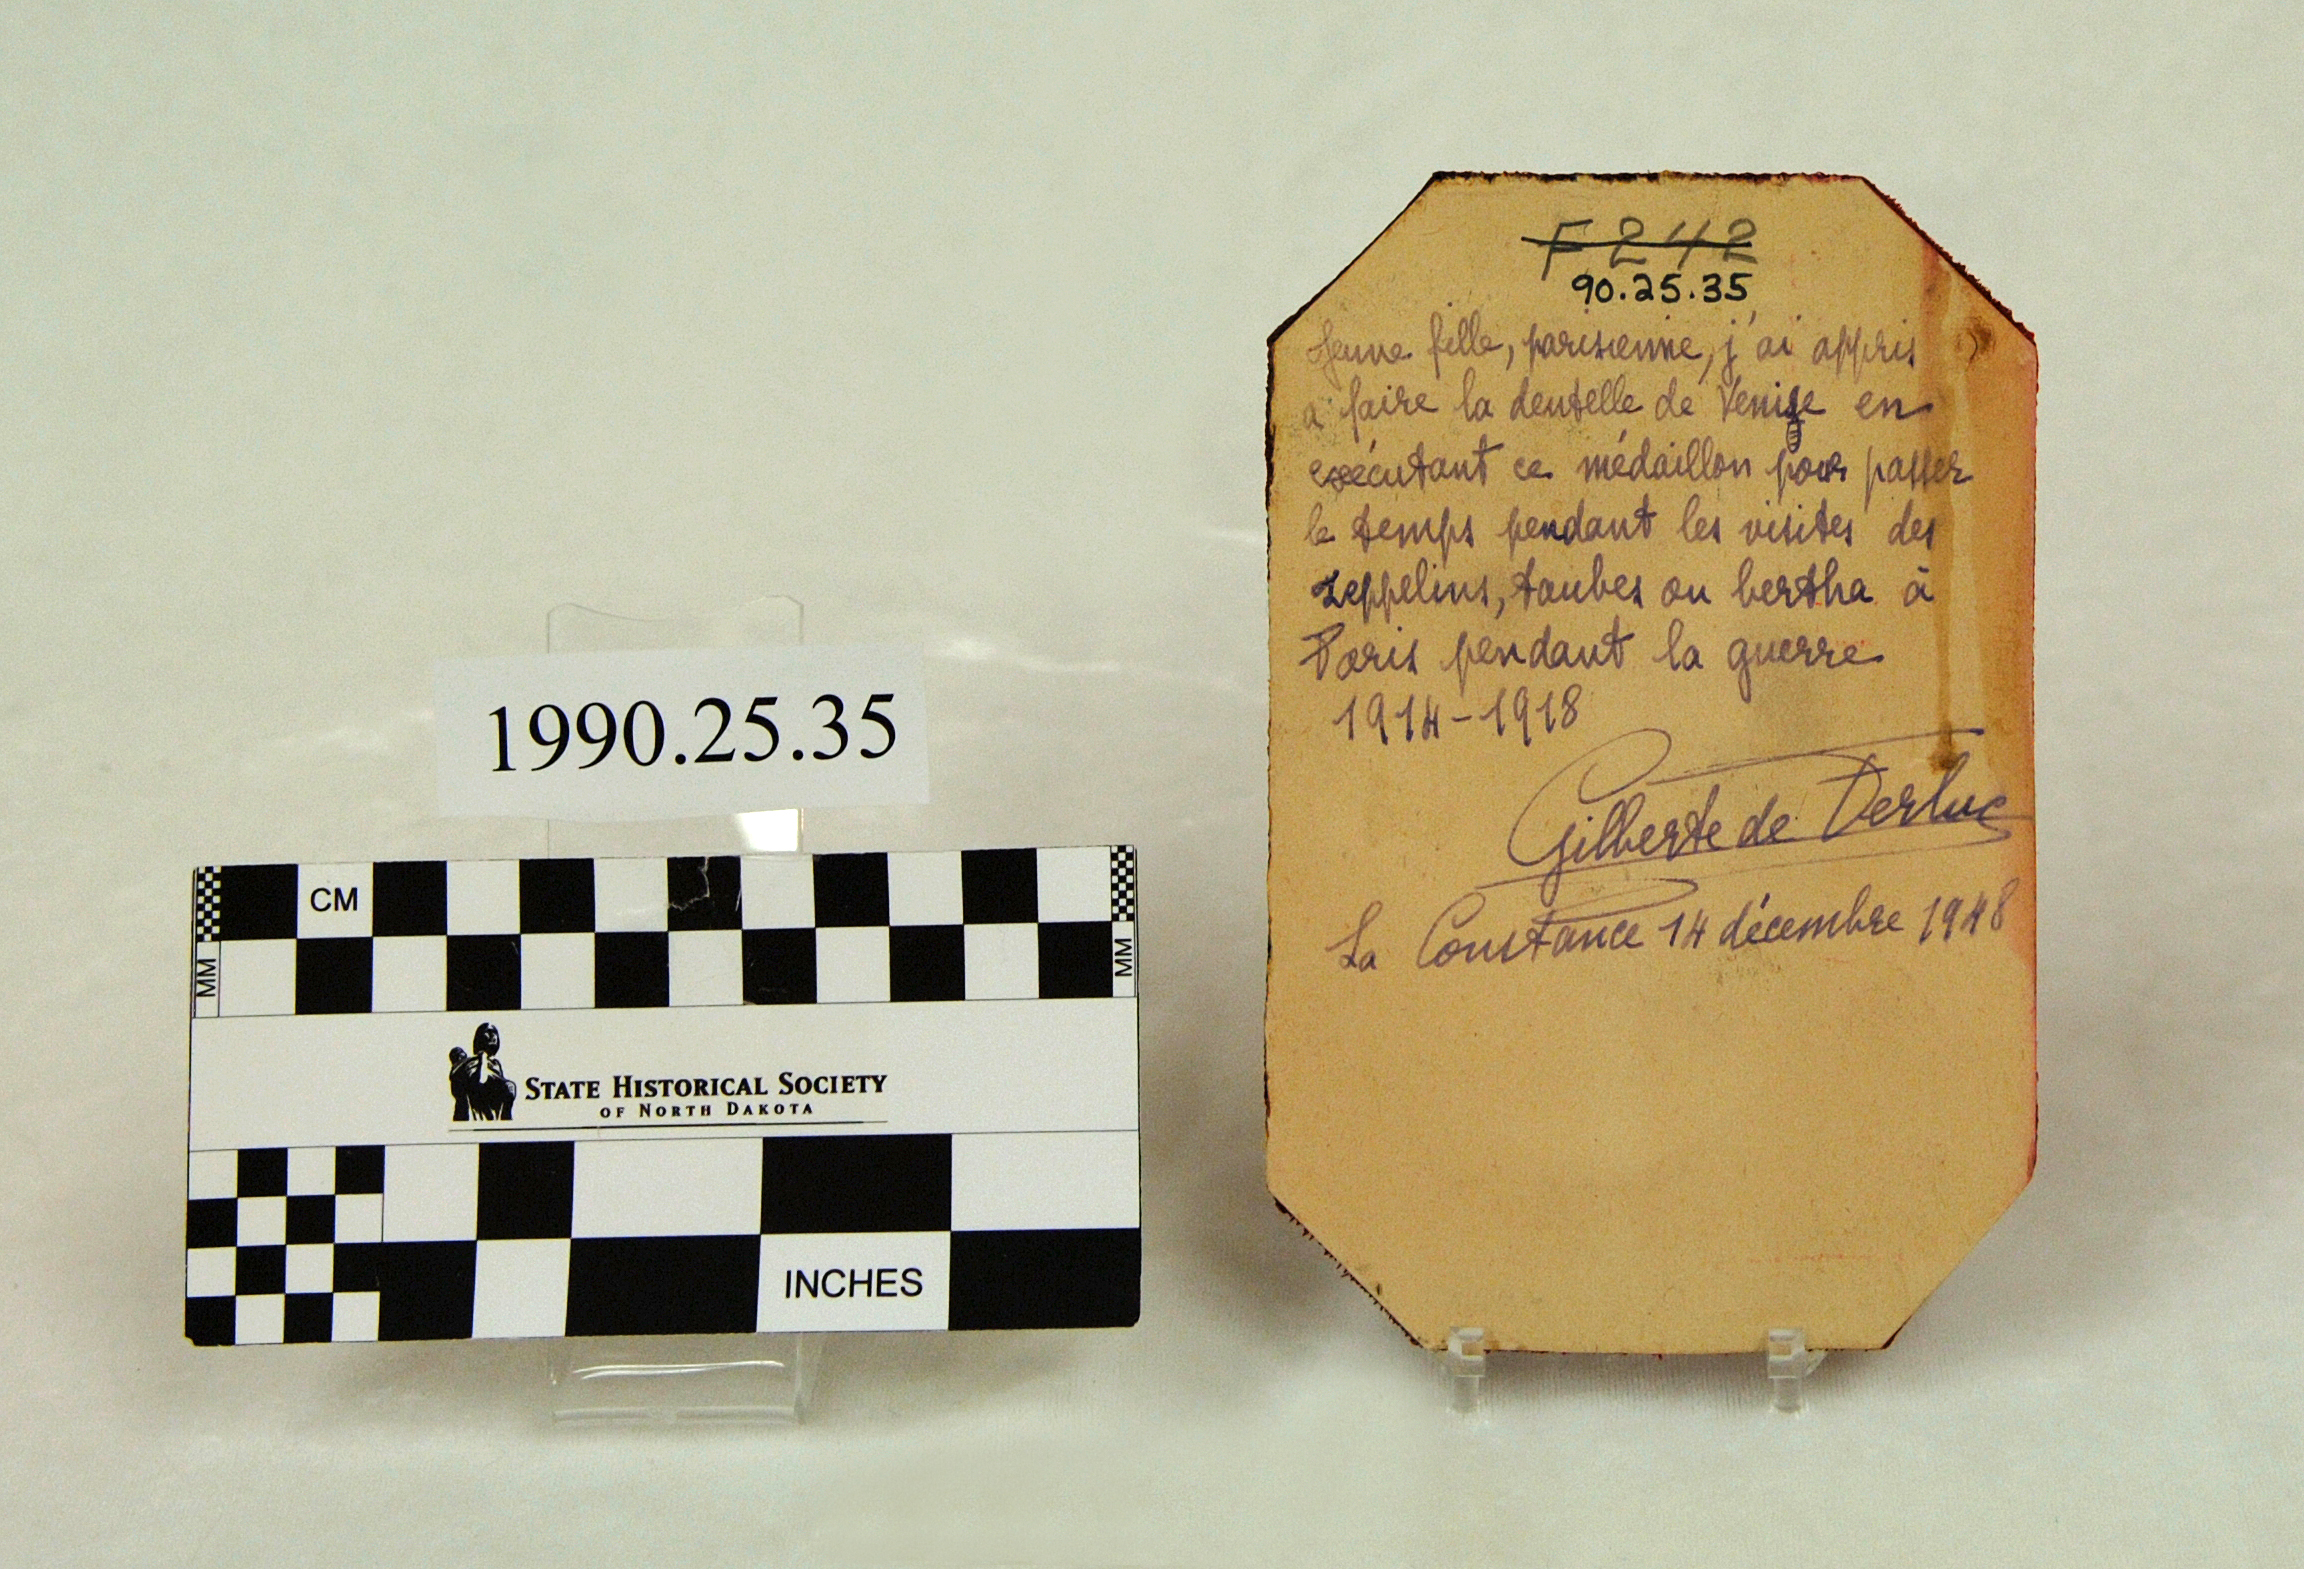 1990.25.35
CM
MM
MM
STATE HISTORICAL SOCIETY
OF NORTH DAKOTA
INCHES
F242
90.25.35
Jeune fille, parisienne, j'ai appris
a faire la dentelle de Venise en
exécutant ce médaillon pour passer
le temps pendant les visites des
zeppelins, taubes ou bertha à
Paris pendant la guerre
1914-1918
Gilberte de
La Constance 14 décembre 1948